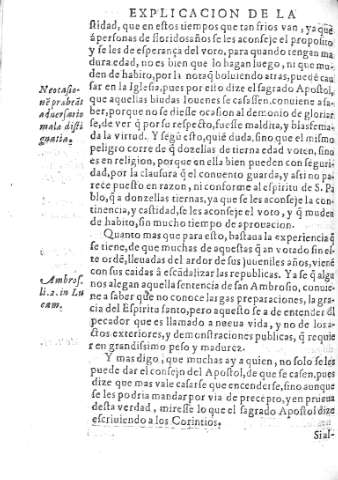 EXPLICACION DE LA
stidad, que en estos tiempos que tan frios van, ya que
à personas de floridos años se les aconseje el proposito
y se les de esperança del voto, para quando tengan ma
dura edad, no es bien que lo hagan luego, ni que mu-
den de habito, por la nota que boluiendo atras, puede cau
sar en la Iglesia, pues por esso dize el sagrado Apostol,
que aquellas biudas jouenes se casassen. conuiene a sa-
ber, porque no se diesse ocasion al demonio de gloriar
se, de ver q̃ por su respecto, fuesse maldita, y blasfema-
da la virtud. Y segũ esto, quiẽ duda, sino que el mismo
peligro corre de q̃ dozellas de tierna edad voten, sino
es en religion, porque en ella bien pueden con seguri-
dad, por la clausura q̃ el conuento guarda, y assi no pa-
rece puesto en razon, ni conforme al espiritu de S. Pa
blo, q̃ a donzellas tiernas, ya que se les aconseje la con
tinencia, y castidad, se les aconseje el voto, y q̃ muden
de habito, sin mucho tiempo de aprouacion.
Quanto mas que para esto, bastaua la experiencia q̃
se tiene, de que muchas de aquestas q̃ an votado sin es-
te ordẽ, lleuadas del ardor de sus juueniles años, vienẽ
con sus caidas à escãdalizar las republicas. Ya se q̃ algu
nos alegan aquella sentencia de san Ambrosio, conuie
ne a saber que no conoce largas preparaciones, la gra-
cia del Espiritu santo, pero aquesto se a de entender dl
pecador que es llamado a nueua vida, y no de los a-
ctos exteriores, y demonstraciones publicas, q̃ requie
ren grandissimo peso y madurez.
Y mas digo, que muchas ay a quien, no solo se les
puede dar el consejo del Apostol, de que se casen, pues
dize que mas vale casarse que encenderse, sino aunque
se les podria mandar por via de precepto, y en prueua
desta verdad, miresse lo que el sagrado Apostol dize
escriuiendo a los Corintios.
Sial-
Ne occasio-
nẽ probrãt
aduersario
maledictã
gratia.
Ambros.
li. 2. in Lu
cam.